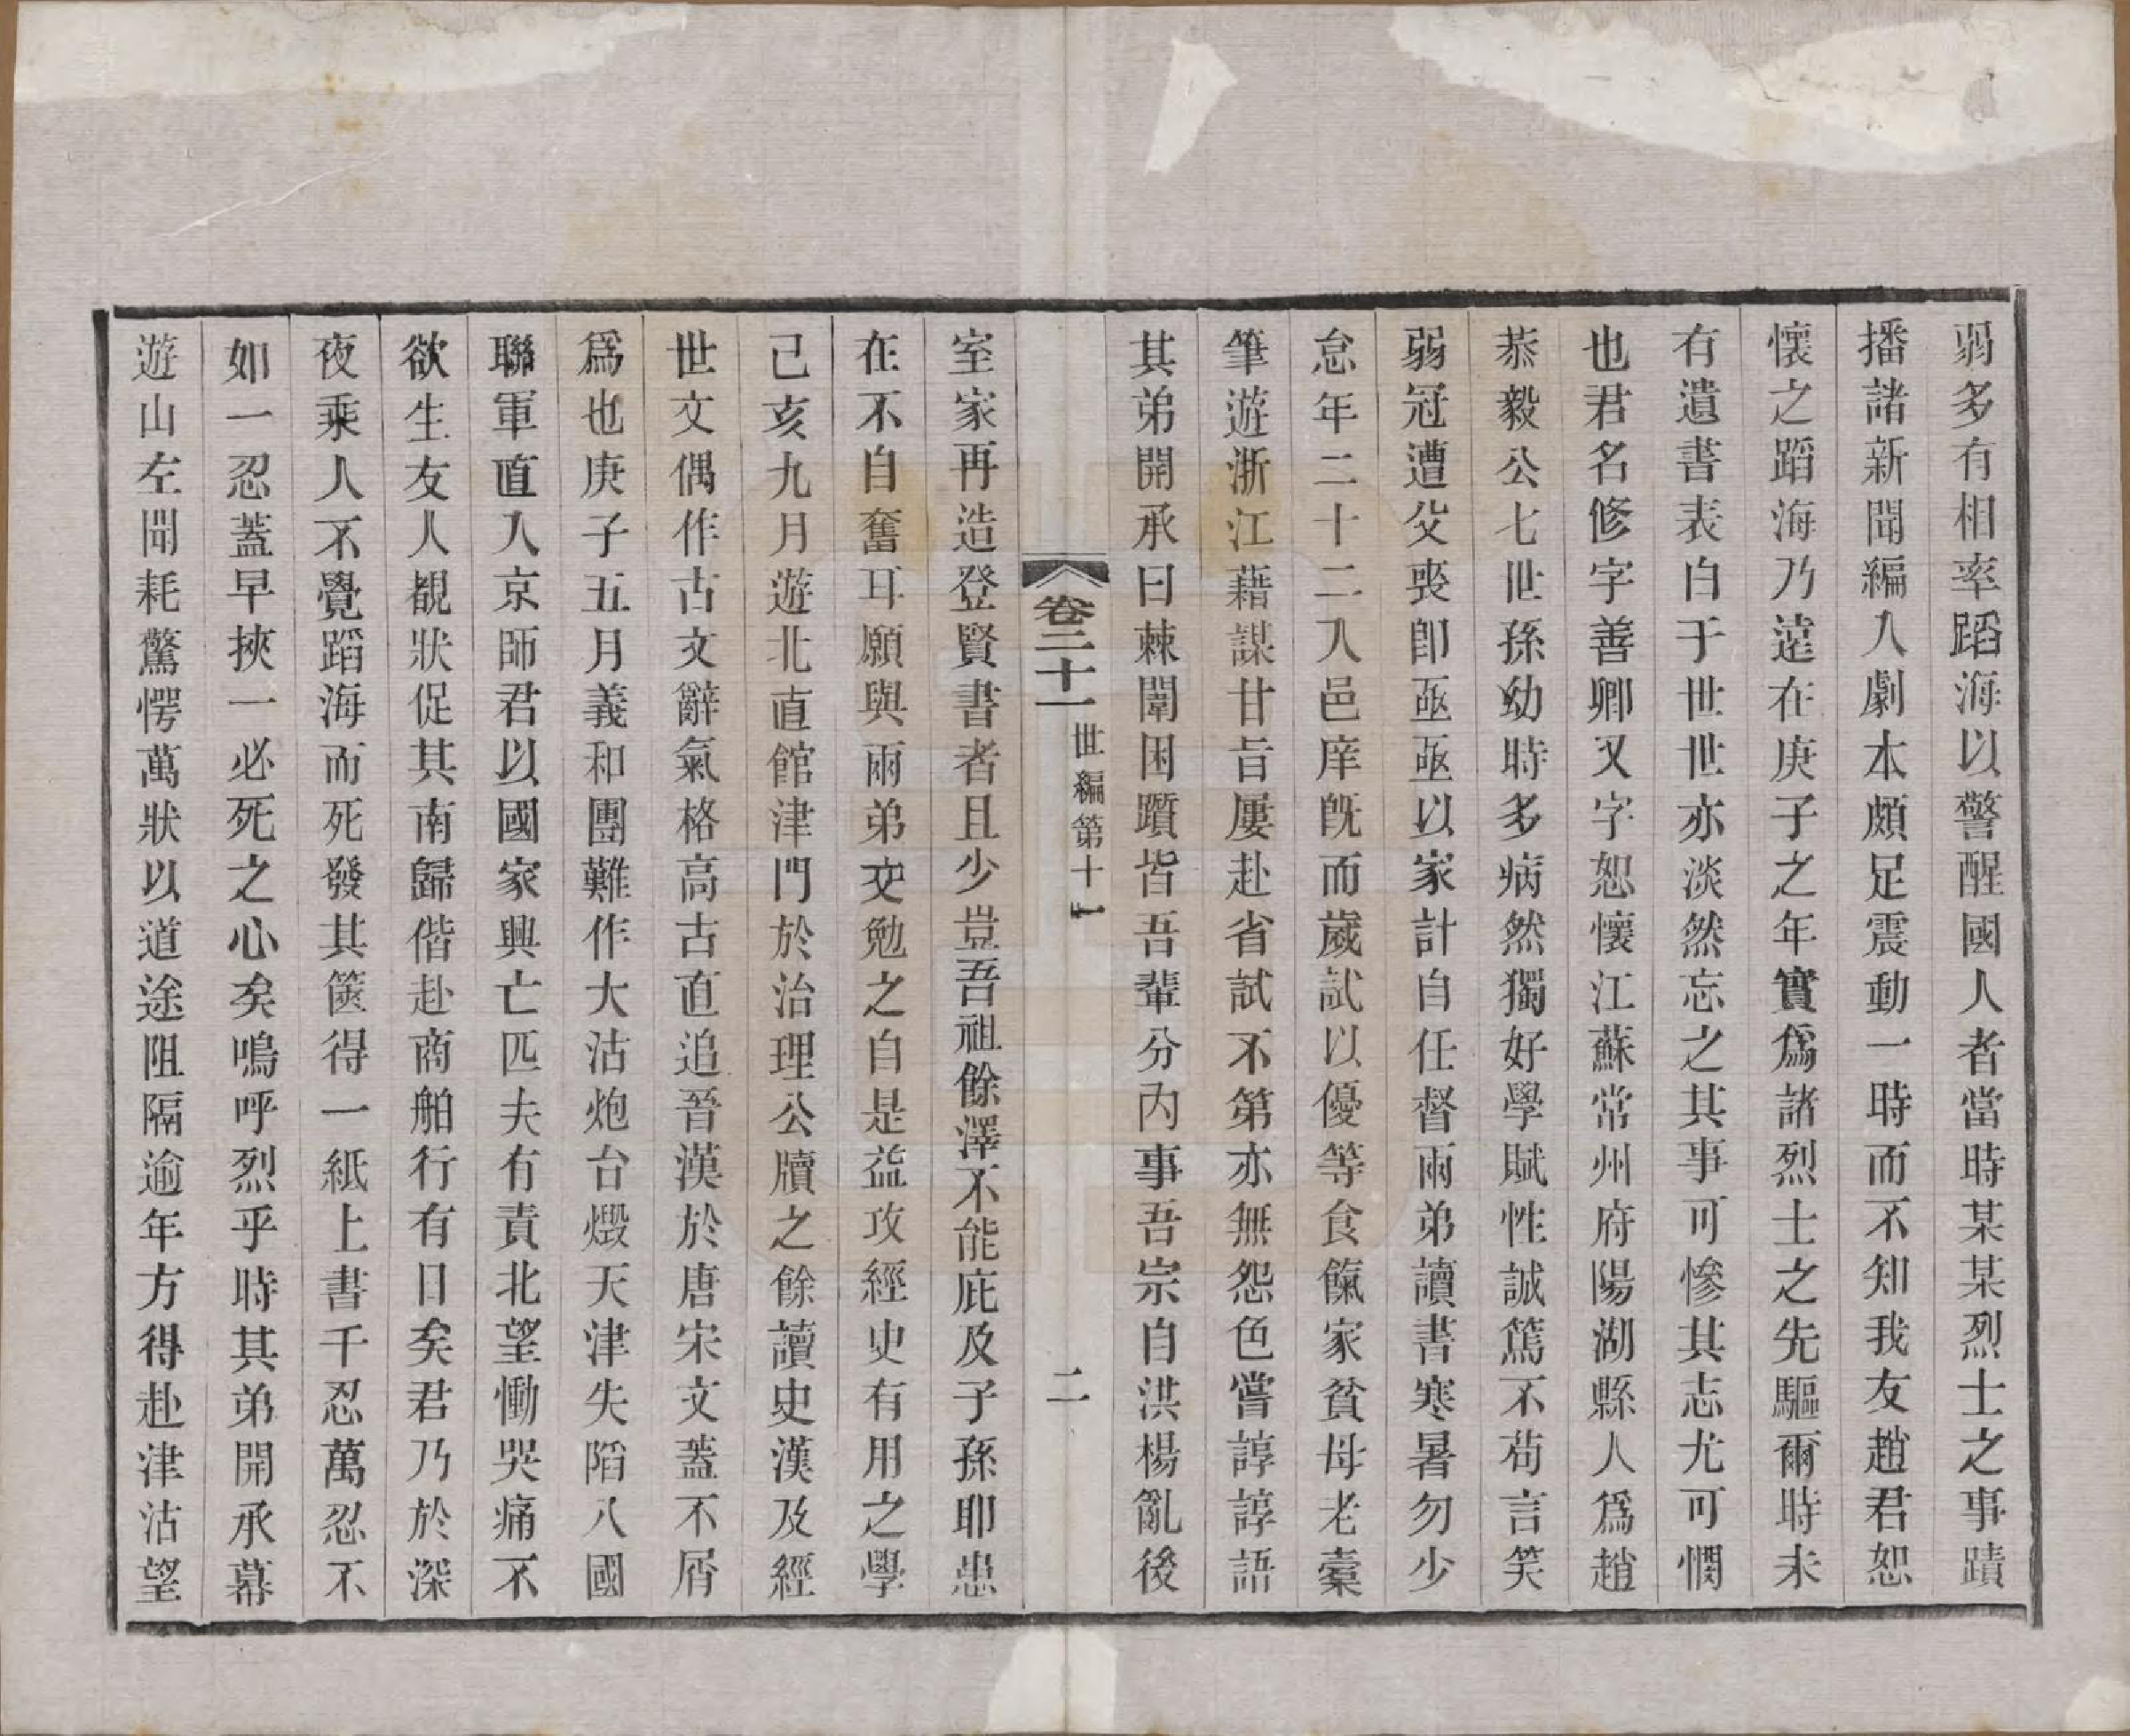 弱多有相率蹈海以警醒國人者當時某某烈士之事蹟
播諸新聞編入劇本頗足震動一時而不知我友趙君恕
懷之蹈海乃遠在庚子之年實爲諸烈士之先驅爾時未
有遺書表白于世世亦淡然忘之其事可慘其志尤可憫
也君名修字善卿又字恕懷江蘇常州府陽湖縣人爲趙
恭毅公七世孫幼時多病然獨好學賦性誠篤不苟言笑
弱冠遭父喪卽亟亟以家計自任督兩弟讀書寒暑勿少
怠年二十二入邑庠旣而歲試以優等食餼家貧母老橐
筆遊浙江藉謀甘旨屢赴省試不第亦無怨色嘗諄諄語
其弟開承曰棘闈困躓皆吾輩分內事吾宗自洪楊亂後
卷二十一 世編第十一 二
室家再造登賢書者且少豈吾祖餘澤不能庇及子孫耶患
在不自奮耳願與兩弟交勉之自是益攻經史有用之學
己亥九月遊北直館津門於治理公牘之餘讀史漢及經
世文偶作古文辭氣格高古直追晉漢於唐宋文蓋不屑
爲也庚子五月義和團難作大沽炮台燬天津失陷八國
聯軍直入京師君以國家興亡匹夫有責北望慟哭痛不
欲生友人覩狀促其南歸偕赴商舶行有日矣君乃於深
夜乘人不覺蹈海而死發其篋得一紙上書千忍萬忍不
如一忍蓋早挾一必死之心矣嗚呼烈乎時其弟開承幕
遊山左聞耗驚愕萬狀以道途阻隔逾年方得赴津沽望